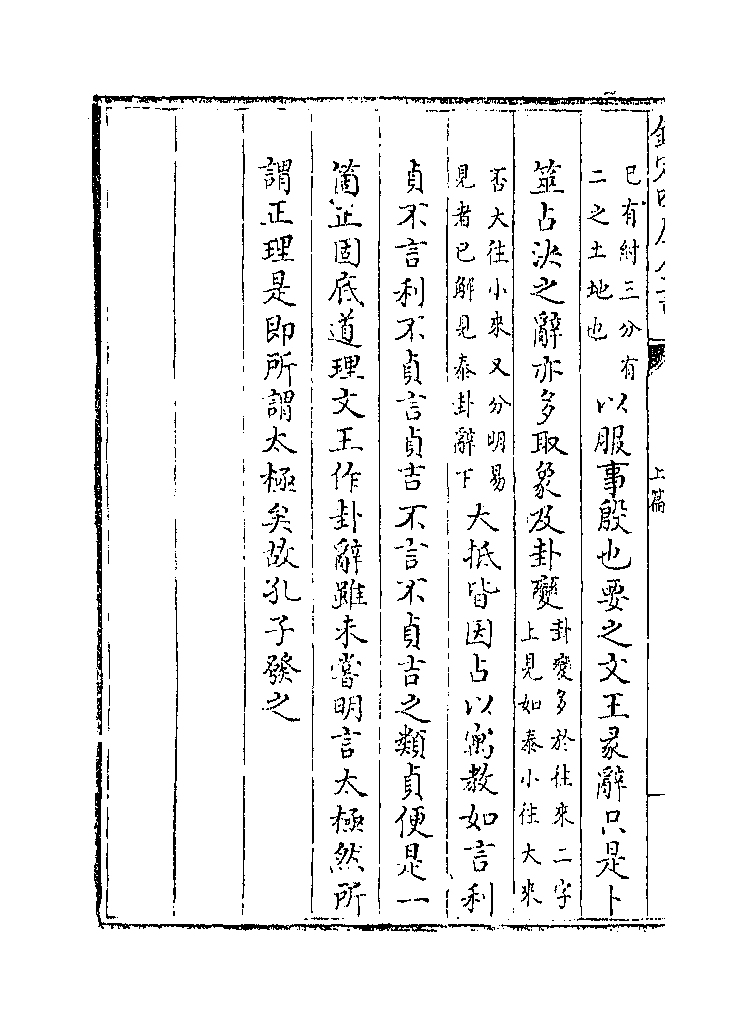 上篇
已有紂三分有
二之土地也
以服事殷也要之文王彖辭只是卜
筮占決之辭亦多取象及卦變
卦變多於往來二字
上見如泰小往大來
否大往小來又分明易
見者已解見泰卦辭下
大抵皆因占以寓教如言利
貞不言利不貞言貞吉不言不貞吉之類貞便是一
箇正固底道理文王作卦辭雖未嘗明言太極然所
謂正理是即所謂太極矣故孔子發之